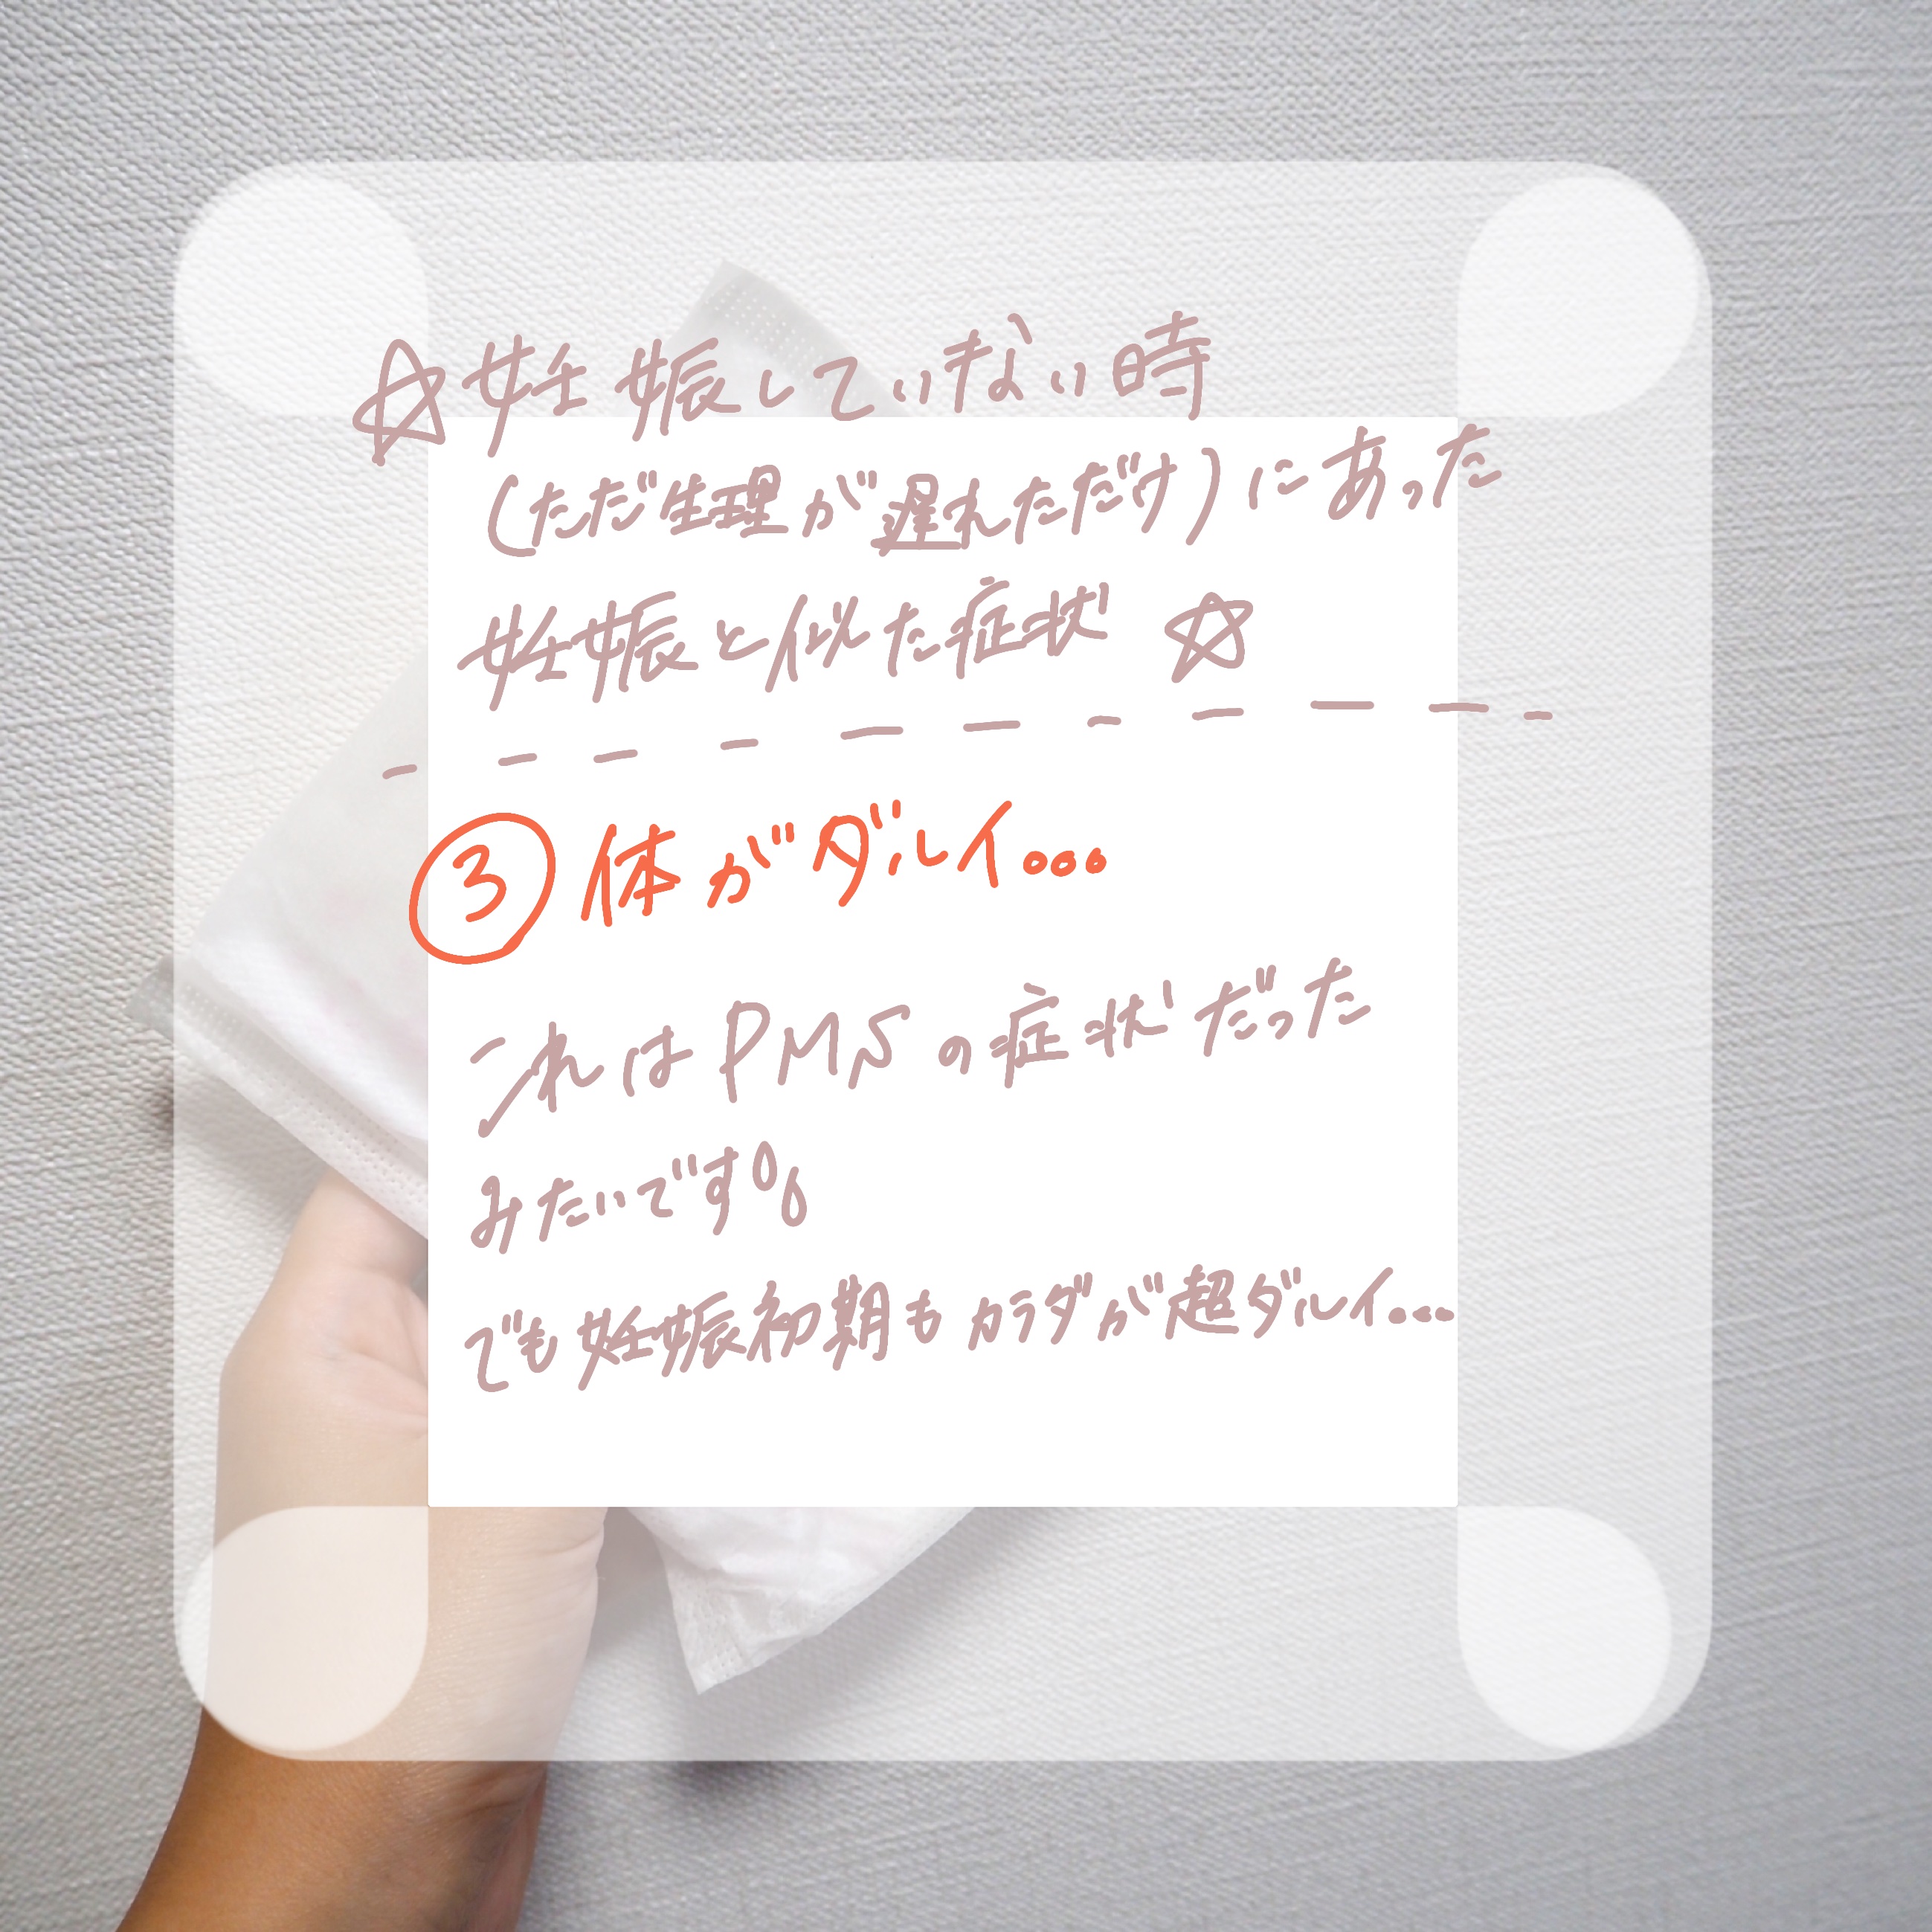 ☆妊娠していない時
(ただ生理が遅れただけ)にあった
妊娠と似た症状 ☆
③ 体がダルイ...
これはPMSの症状だった
みたいです。
でも妊娠初期もカラダが超ダルイ...